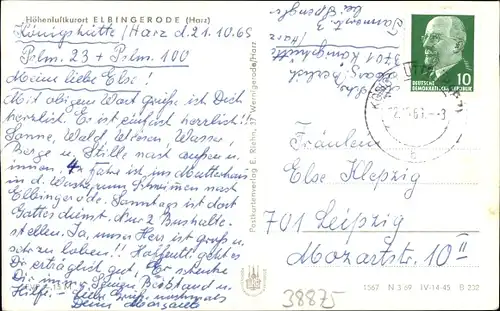 Höhenluftkurort ELBINGERODE (Harz)
Königshütte/Harz d. 21.10.69
Pslm. 23 + Pslm. 100
Meine liebe Else!
Mit obigem Wort grüße ich Dich
herzlich. Er ist einfach herrlich!!
Sonne, Wald, Wiesen, Wasser,
Berge u. Stille nach außen u.
innen. fahre ich ins Mutterhaus
in d. zum Schwimmen nach
Elbingerode. Sonntags ist dort
Gottesdienst. Nur 2 Bushalte-
stellen. Ja, unser Herr ist groß u.
sehr zu loben!! Hoffentl. geht es
Dir erträglich gut, Er schenke
Dir seinen Beistand u.
Hilfe. nochmals
Deine
Postkartenverlag E. Riehn, 37 Wernigerode/Harz
3701 Königshütte
/Harz
DEUTSCHE
DEMOKRATISCHE REPUBLIK
10
Fräulein
Else Klepzig
701 Leipzig
Mozartstr. 10 II
38875
1567 N 3 69 IV-14-45 B 232